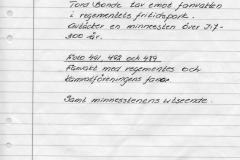 Tord Bonde tar emot fanvakten
i regementets fritidspark.
Avtäcker en minnessten över I17-
300 år.
Foto 491, 492 och 489
Fanvakt med regementets och
kamratföreningens fanor
Samt minnesstenens utseende.